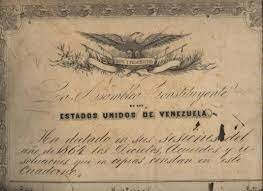 DIOS Y FEDERACION
La Asamblea Constituyente
DE LOS
ESTADOS UNIDOS DE VENEZUELA.
Ha dictado en sus sesiones del
año de 1864 los Decretos, Acuerdos y re
soluciones que en copias constan en este
Cuaderno.